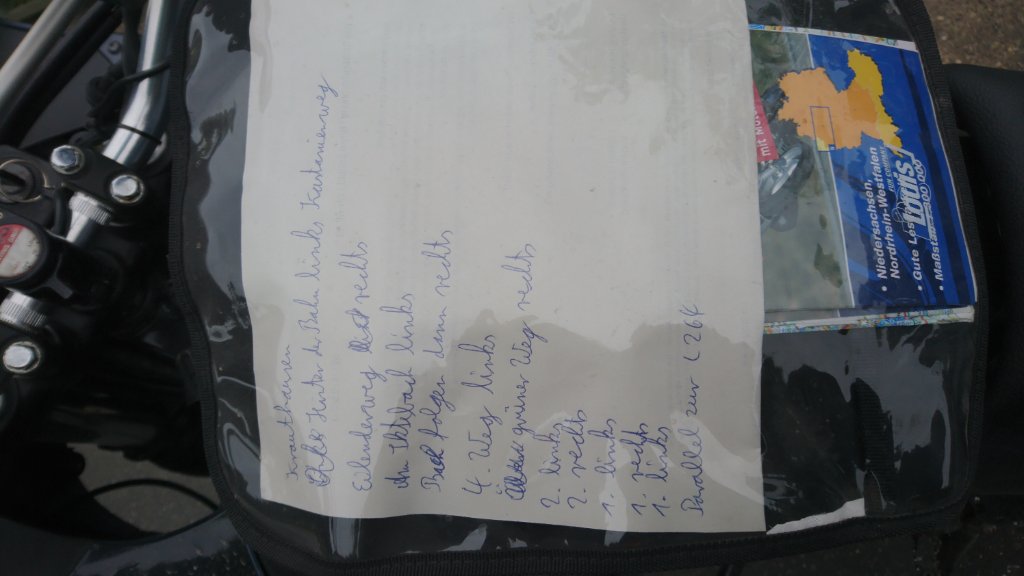 Krauthausen
Hinter der Bahn links Kastanienweg
Eilenderweg rechts
Am Iktebach links
Bach folgen dann rechts
4. Weg links
grüner Weg rechts
2. links
2. rechts
1. links
1. rechts
1. links
Parallel zur L264
mit
• Niedersachsen,
Nordrhein-Westfalen
• Gute
• Maßsta